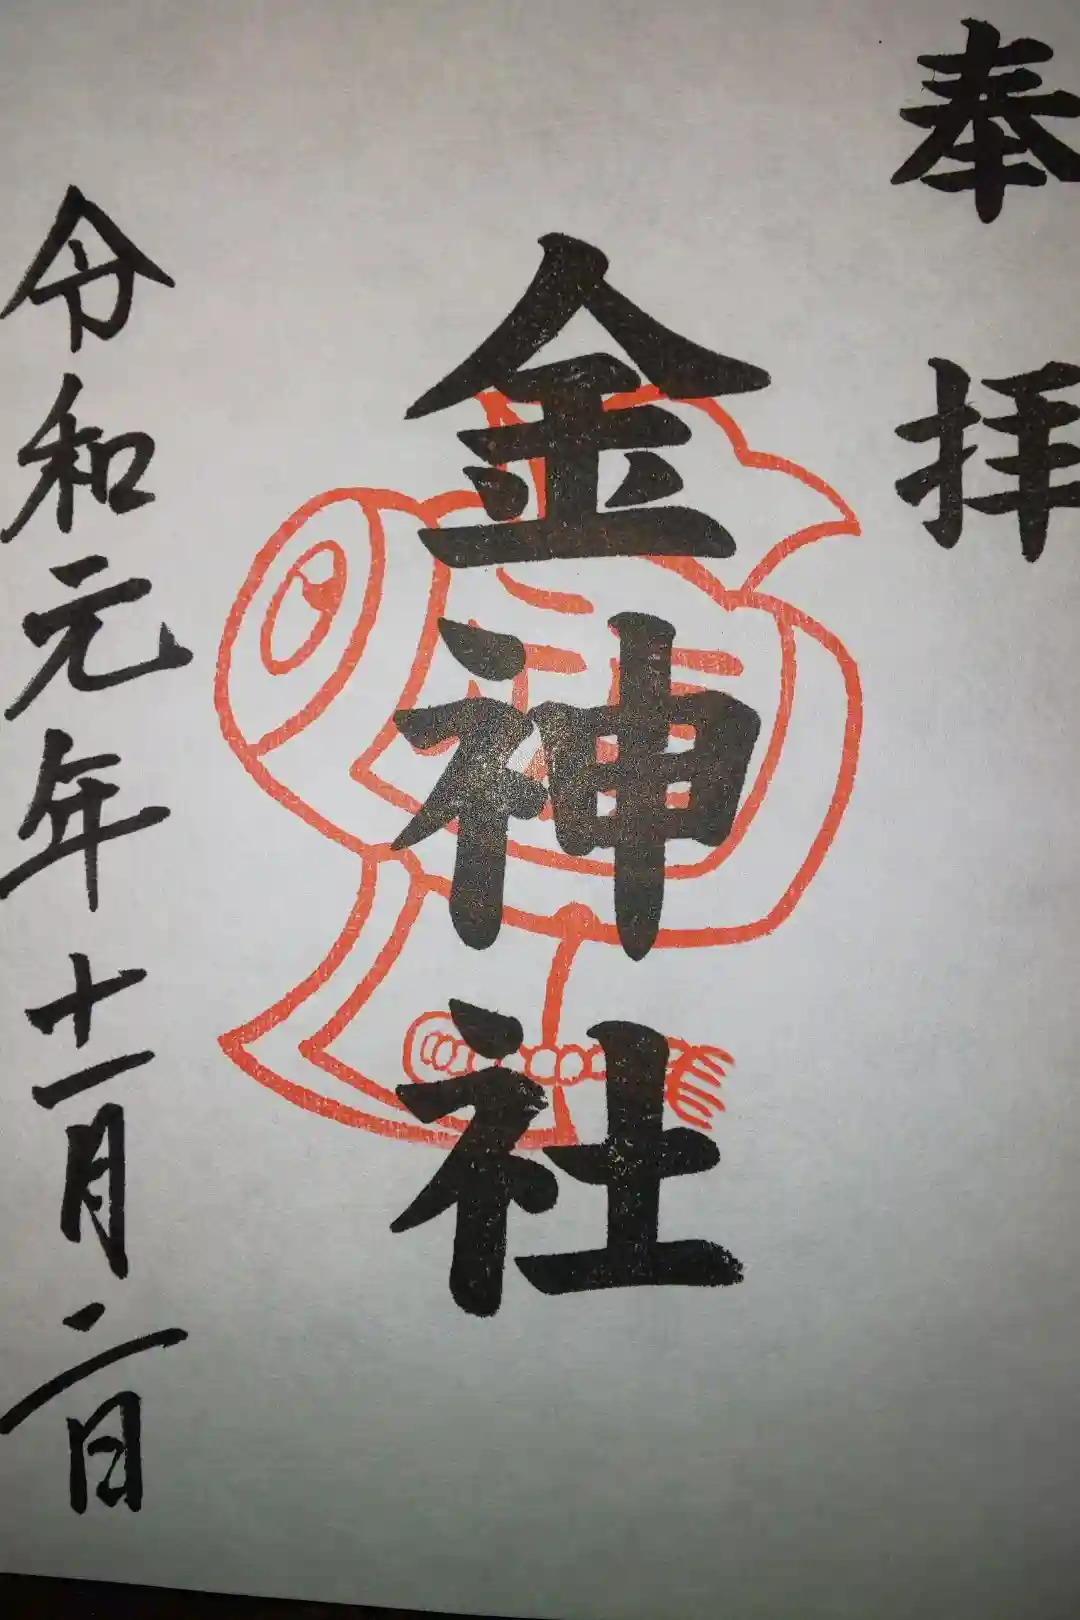 奉拝
金神社
令和元年十一月二日